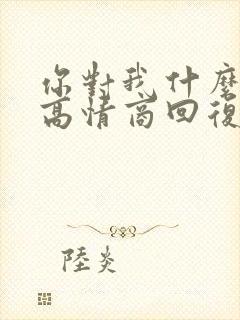 你對我什麼
高情商回復
陸炎